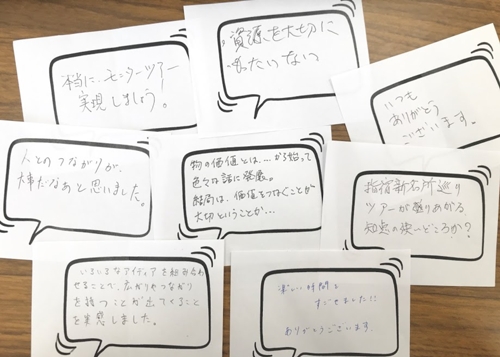 本当に、モニターツアー
実現しましょう。
資源を大切に
いつも
ありがとう
ございます。
人とのつながりが、
大事だなあと思いました。
物の価値とは…から始って
色々な話に発展。
結局は、価値をつなぐことが
大切ということか…
指宿新名所巡り
ツアーが盛りあがる
知恵の使いどころか?
いろいろなアイディアを組み合わ
せることで、広がりやつながり
を持つことが出てくること
を実感しました。
楽しい時間を
すごせました!!
ありがとうございます.